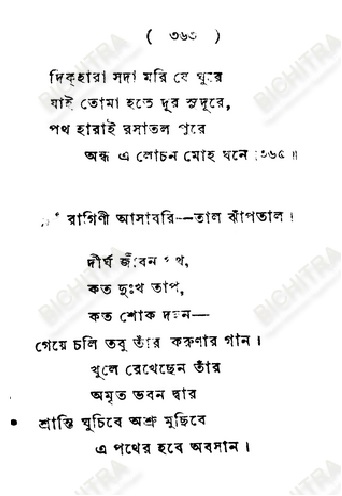 ( ৩৬৩ )
দিক্‌হারা সদা মরি যে ঘুরে
যাই তোমা হতে দূর সুদূরে,
পথ হারাই রসাতল পুরে
অন্ধ এ লোচন মোহ ঘনে।৩৬৫॥
রাগিণী আসাবরি—তাল ঝাঁপতাল।
দীর্ঘ জীবন পথ,
কত দুঃখ তাপ,
কত শোক দহন—
গেয়ে চলি তবু তাঁর করুণার গান।
খুলে রেখেছেন তাঁর
অমৃত ভবন দ্বার
শ্রান্তি ঘুচিবে অশ্রু মুছিবে
এ পথের হবে অবসান।
BICHITRA
BICHITRA
BICHITRA
BICHITRA
BICHITRA
BICHITRA